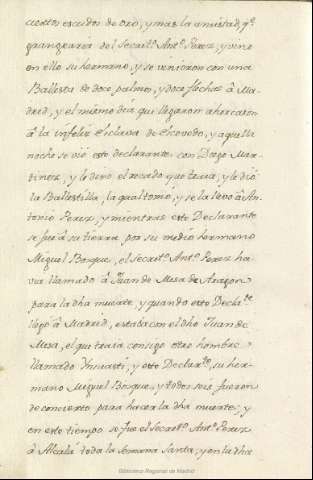 cientos escudos de oro, y mas la amistad, q.e
grangearia del Secret.o Ant.o Perez, y vino
en ello su hermano, y se vinieron con una
Ballesta de doce palmos, y doce flechas à Ma-
drid, y el mismo dia que llegaron ahorcaron
à la infeliz Esclava de Escovedo, y aquella
noche se vió este declarante con Diego Mar-
tinez, y le dixo el recado que traia, y le dió
la Ballestilla, la qual tomó, y se la levó à An-
tonio Perez, y mientras este Declarante
se fue à su tierra por su medio hermano
Miguel Bosque, el Secret.o Ant.o Perez ha-
via llamado à Juan de Mesa de Aragon
para la dha muerte, y quando este Decla.te
llegó à Madrid, estaba con el dho Juan de
Mesa, el que traia consigo otro hombre
llamado Ynsausti, y este Declar.te, su her-
mano Miguel Bosque, y todos seis fueron
de concierto para hacer la dha muerte; y
en este tiempo se fue el Secret.o Ant.o Perez
à Alcalá toda la Semana Santa, y en la dha
Biblioteca Regional de Madrid